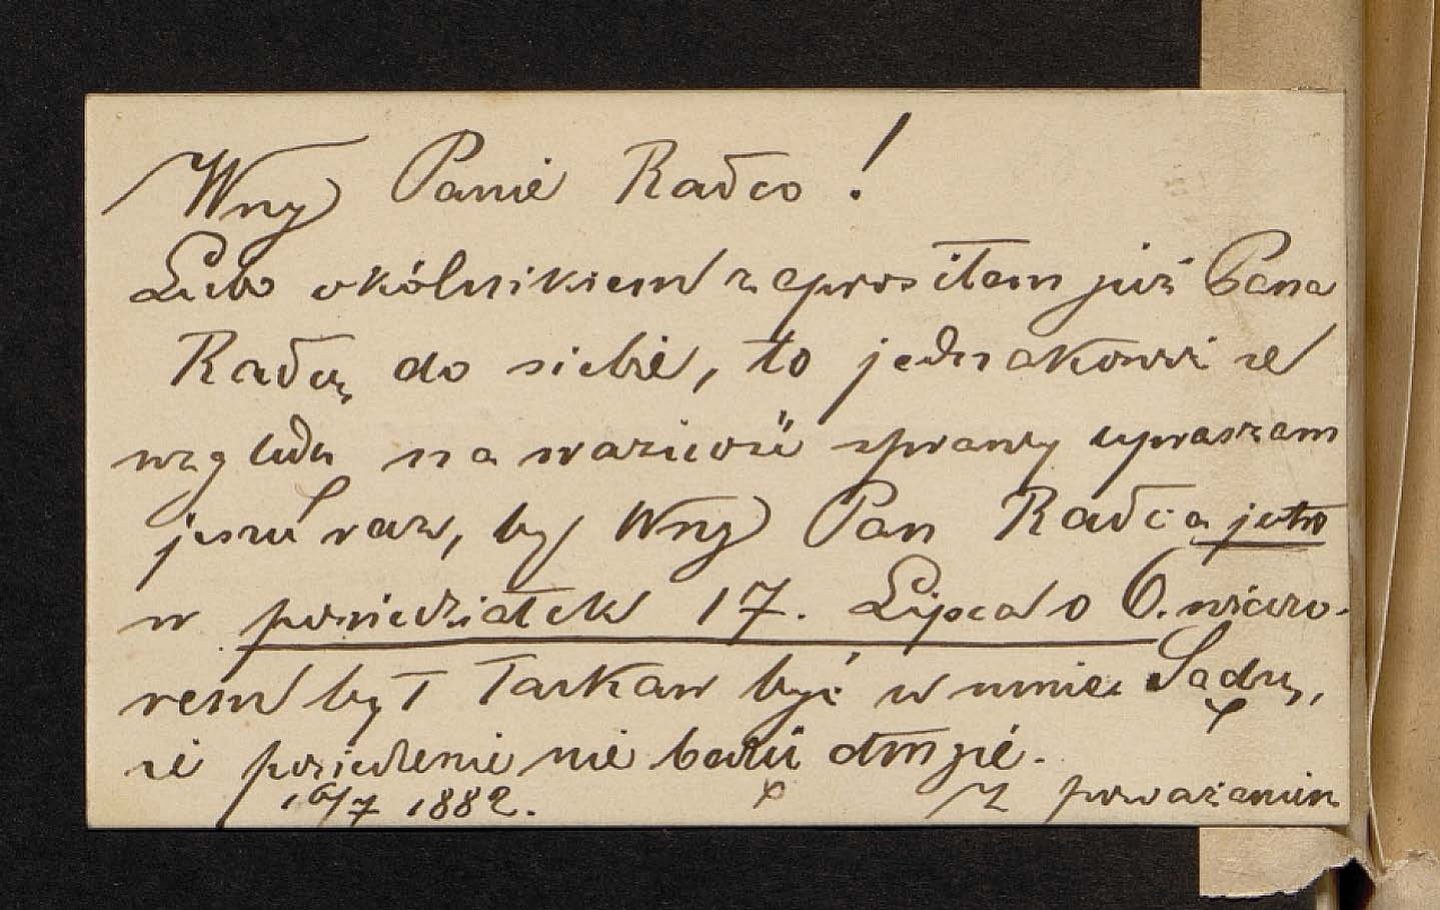 Wny Panie Radco!
Lubo okólnikiem zaprosiłem już Pana
Radcę do siebie, to jednakowoż ze
względu na ważność sprawy upraszam
jeszcze raz, by Wny Pan Radca jutro
w poniedziałek 17. Lipca o 6. wieczo-
rem był łaskaw być u mnie. Sądzę,
że posiedzenie nie będzie długie.
16/7 1882. Z poważaniem